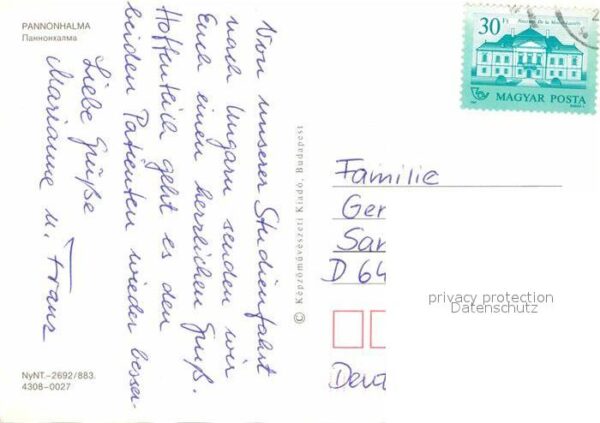 PANNONHALMA
Паннонхалма
Von unserer Studienfahrt
nach Ungarn senden wir
Euch einen herrlichen Gruß.
Hoffentlich geht es den
beiden Patienten wieder besser.
Liebe Grüße
Marianne u. Franz
NyNT.–2692/883.
4308-0027
© Képzőművészeti Kiadó, Budapest
30 Ft
MAGYAR POSTA
Familie
Ger
San
D 64
privacy protection
Datenschutz